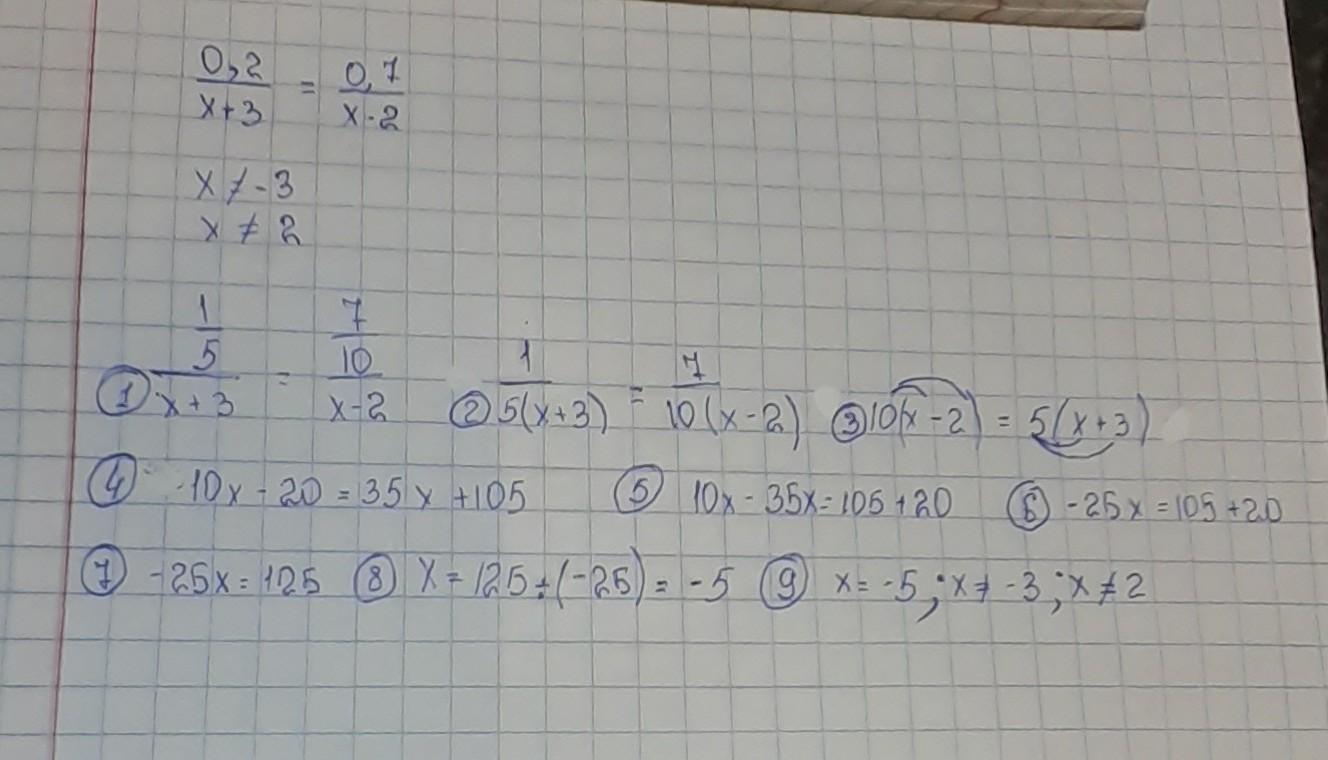 0,2 / x+3 = 0,7 / x-2
x ≠ -3
x ≠ 2
① 1/5 / x+3 = 7/10 / x-2 ② 1 / 5(x+3) = 7 / 10(x-2) ③ 10(x-2) = 5(x+3)
④ 10x - 20 = 35x + 105 ⑤ 10x - 35x = 105 + 20 ⑥ -25x = 105 + 20
⑦ -25x = 125 ⑧ x = 125 ÷ (-25) = -5 ⑨ x = -5; x ≠ -3; x ≠ 2